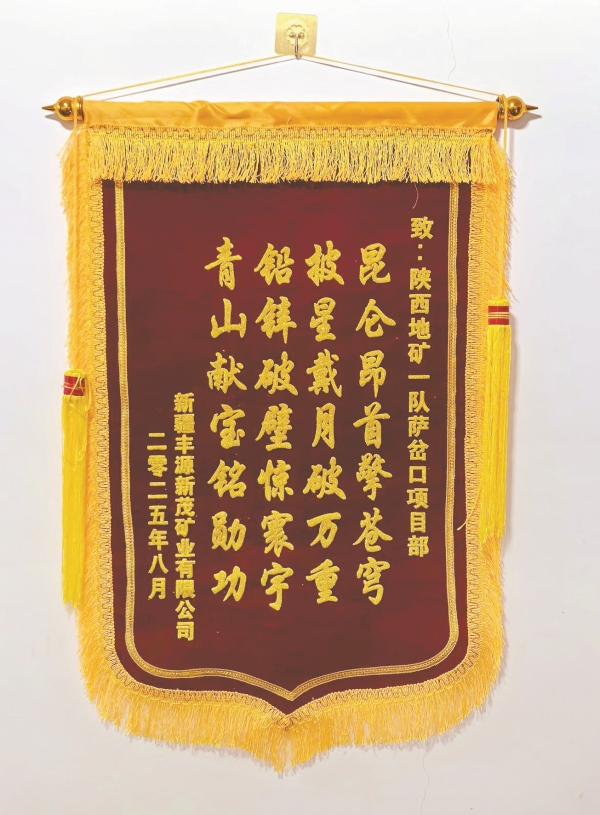 致：陕西地矿一队萨岔口项目部
昆仑昂首擎苍穹
披星戴月破万重
铅锌破壁惊寰宇
青山献宝铭勋功
新疆丰源新茂矿业有限公司
二零二五年八月